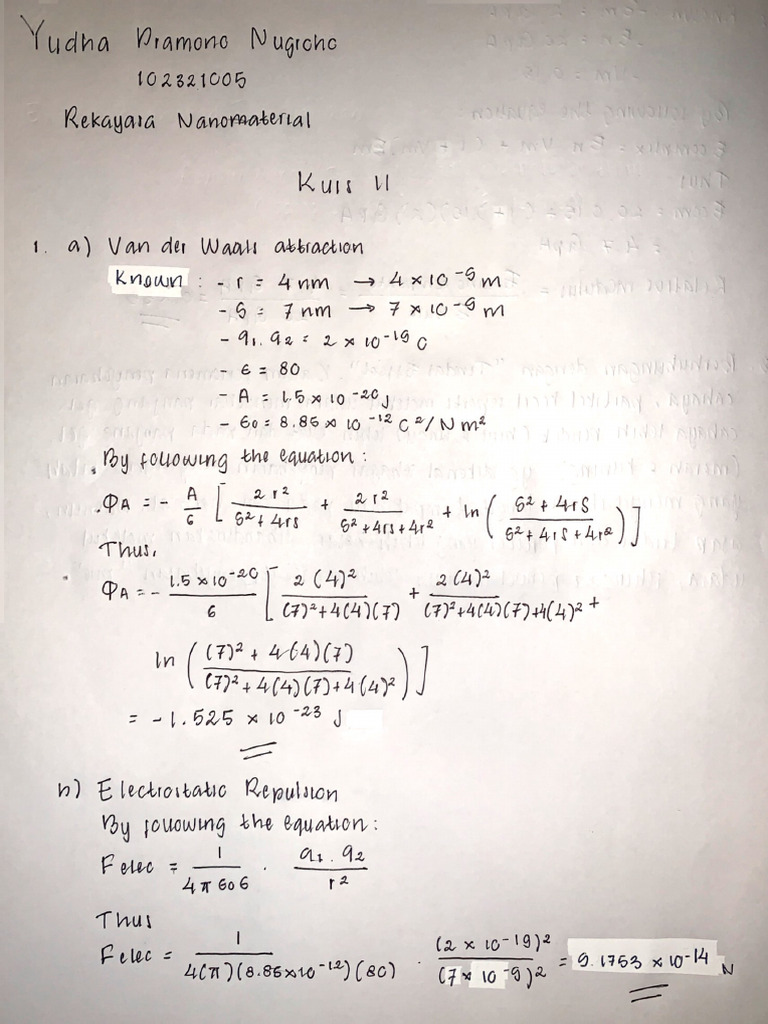 Yudha Pramono Nugroho
102321005
Rekayasa Nanomaterial
Kuis II
1. a) Van der Waals attraction
Known : - r = 4 nm → 4 × 10⁻⁹ m
- S = 7 nm → 7 × 10⁻⁹ m
- q₁.q₂ = 2 × 10⁻¹⁹ C
- ε = 80
- A = 1.5 × 10⁻²⁰ J
- ε₀ = 8.85 × 10⁻¹² C²/Nm²
By following the equation :
ΦA = - A/6 [ 2r²/(S² + 4rS) + 2r²/(S² + 4rS + 4r²) + ln ( (S² + 4rS)/(S² + 4rS + 4r²) ) ]
Thus,
ΦA = - 1.5 × 10⁻²⁰/6 [ 2(4)²/((7)² + 4(4)(7)) + 2(4)²/((7)² + 4(4)(7) + 4(4)²) +
ln ( ((7)² + 4(4)(7))/((7)² + 4(4)(7) + 4(4)²) ) ]
= - 1.525 × 10⁻²³ J
b) Electrostatic Repulsion
By following the equation :
F elec = 1/(4πε₀ε) . q₁.q₂/r²
Thus
F elec = 1/(4(π)(8.85×10⁻¹²)(80)) . (2 × 10⁻¹⁹)²/(7 × 10⁻⁹)² = 9.1753 × 10⁻¹⁴ N